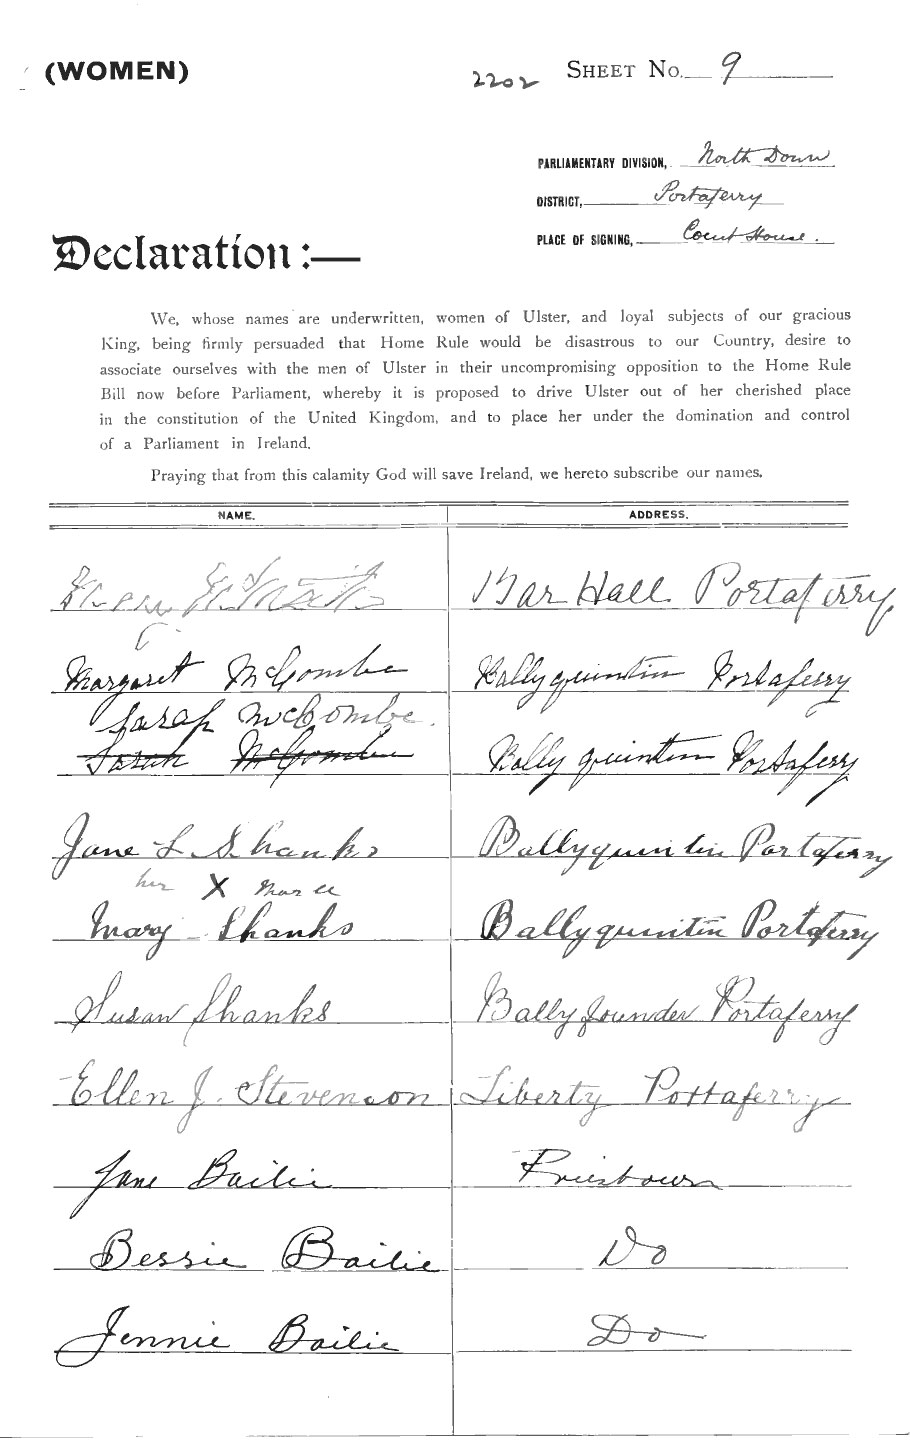 (WOMEN)
2202 SHEET No. 9
PARLIAMENTARY DIVISION, North Down
DISTRICT, Portaferry
PLACE OF SIGNING, Court House.
Declaration:—
We, whose names are underwritten, women of Ulster, and loyal subjects of our gracious
King, being firmly persuaded that Home Rule would be disastrous to our Country, desire to
associate ourselves with the men of Ulster in their uncompromising opposition to the Home Rule
Bill now before Parliament, whereby it is proposed to drive Ulster out of her cherished place
in the constitution of the United Kingdom, and to place her under the domination and control
of a Parliament in Ireland.
Praying that from this calamity God will save Ireland, we hereto subscribe our names.
NAME. ADDRESS.
Bar Hall Portaferry
Margaret McCombe Ballyquintin Portaferry
Sarah McCombe.
Sarah McCombe Ballyquintin Portaferry
Jane L Shanks Ballyquintin Portaferry
her X mark
Mary Shanks Ballyquintin Portaferry
Susan Shanks Ballyfounder Portaferry
Ellen J. Stevenson Liberty Portaferry
Jane Bailie
Bessie Bailie Do
Jennie Bailie Do